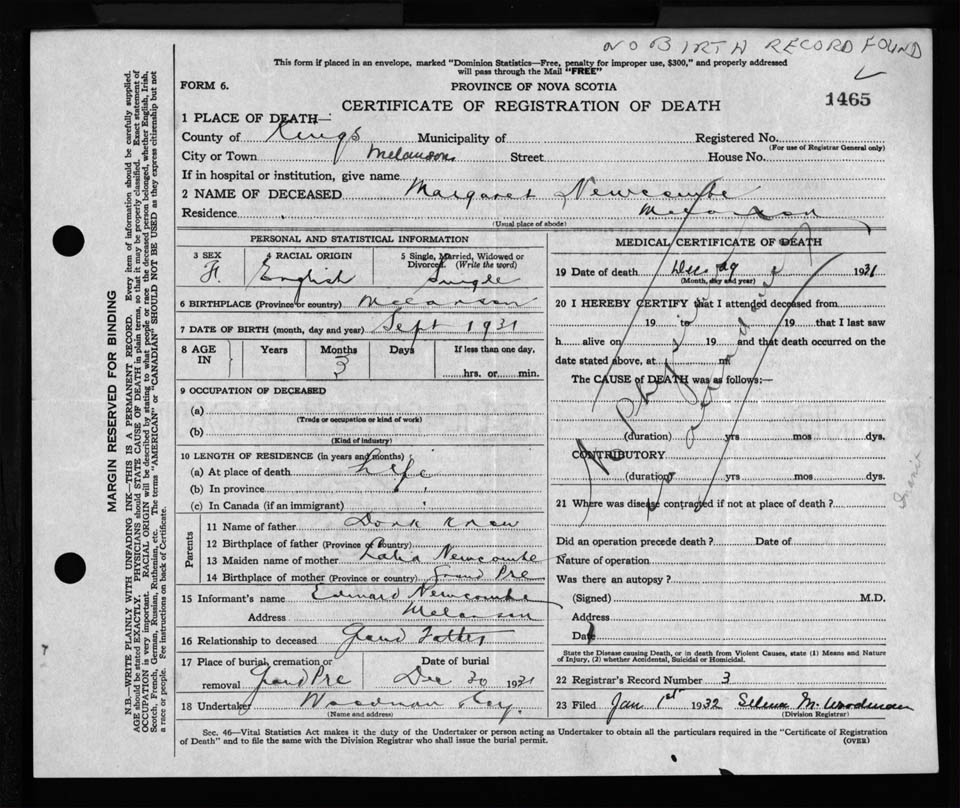 NO BIRTH RECORD FOUND
This form if placed in an envelope, marked "Dominion Statistics—Free, penalty for improper use, $300," and properly addressed
will pass through the Mail "FREE"
FORM 6.
PROVINCE OF NOVA SCOTIA
CERTIFICATE OF REGISTRATION OF DEATH
1465
1 PLACE OF DEATH—
County of Kings Municipality of Registered No.
(For use of Registrar General only)
City or Town Melanson Street House No.
If in hospital or institution, give name
2 NAME OF DECEASED Margaret Newcombe
Residence Melanson
(Usual place of abode)
PERSONAL AND STATISTICAL INFORMATION
3 SEX F.
4 RACIAL ORIGIN English
5 Single, Married, Widowed or Divorced (Write the word) Single
6 BIRTHPLACE (Province or country) Melanson
7 DATE OF BIRTH (month, day and year) Sept 1931
8 AGE IN Years Months 3 Days If less than one day, hrs. or min.
9 OCCUPATION OF DECEASED
(a)
(Trade or occupation or kind of work)
(b)
(Kind of industry)
10 LENGTH OF RESIDENCE (in years and months)
(a) At place of death Life
(b) In province
(c) In Canada (if an immigrant)
Parents
11 Name of father Dont know
12 Birthplace of father (Province or country)
13 Maiden name of mother Newcombe
14 Birthplace of mother (Province or country) Grand Pre
15 Informant's name Edward Newcombe
Address Melanson
16 Relationship to deceased Grand Father
17 Place of burial, cremation or removal Grand Pre
Date of burial Dec 30 1931
18 Undertaker Woodman
(Name and address)
MEDICAL CERTIFICATE OF DEATH
19 Date of death Dec 29 1931
(Month, day and year)
20 I HEREBY CERTIFY that I attended deceased from
19 to 19 that I last saw
h alive on 19 and that death occurred on the
date stated above, at m.
The CAUSE of DEATH was as follows:—
No Physician
(duration) yrs mos dys.
CONTRIBUTORY
(duration) yrs mos dys.
21 Where was disease contracted if not at place of death?
Did an operation precede death? Date of
Nature of operation
Was there an autopsy?
(Signed) M.D.
Address
Date
State the Disease causing Death, or in death from Violent Causes, state (1) Means and Nature
of Injury, (2) whether Accidental, Suicidal or Homicidal.
22 Registrar's Record Number 3
23 Filed Jan 1st 1932 Selena M. Woodman
(Division Registrar)
Sec. 46—Vital Statistics Act makes it the duty of the Undertaker or person acting as Undertaker to obtain all the particulars required in the "Certificate of Registration
of Death" and to file the same with the Division Registrar who shall issue the burial permit.
(OVER)
MARGIN RESERVED FOR BINDING
N.B.—WRITE PLAINLY WITH UNFADING INK—THIS IS A PERMANENT RECORD. Every item of information should be carefully supplied.
AGE should be stated EXACTLY. PHYSICIANS should STATE CAUSE OF DEATH in plain terms, so that it may be properly classified. Exact statement of
OCCUPATION is very important. RACIAL ORIGIN will be described by stating to what people or race the deceased person belonged, whether English, Irish,
Scotch, French, German, Russian, Ruthenian, etc. The terms "AMERICAN" or "CANADIAN" SHOULD NOT BE USED as they express citizenship but not
a race or people. Fee instructions on back of Certificate.